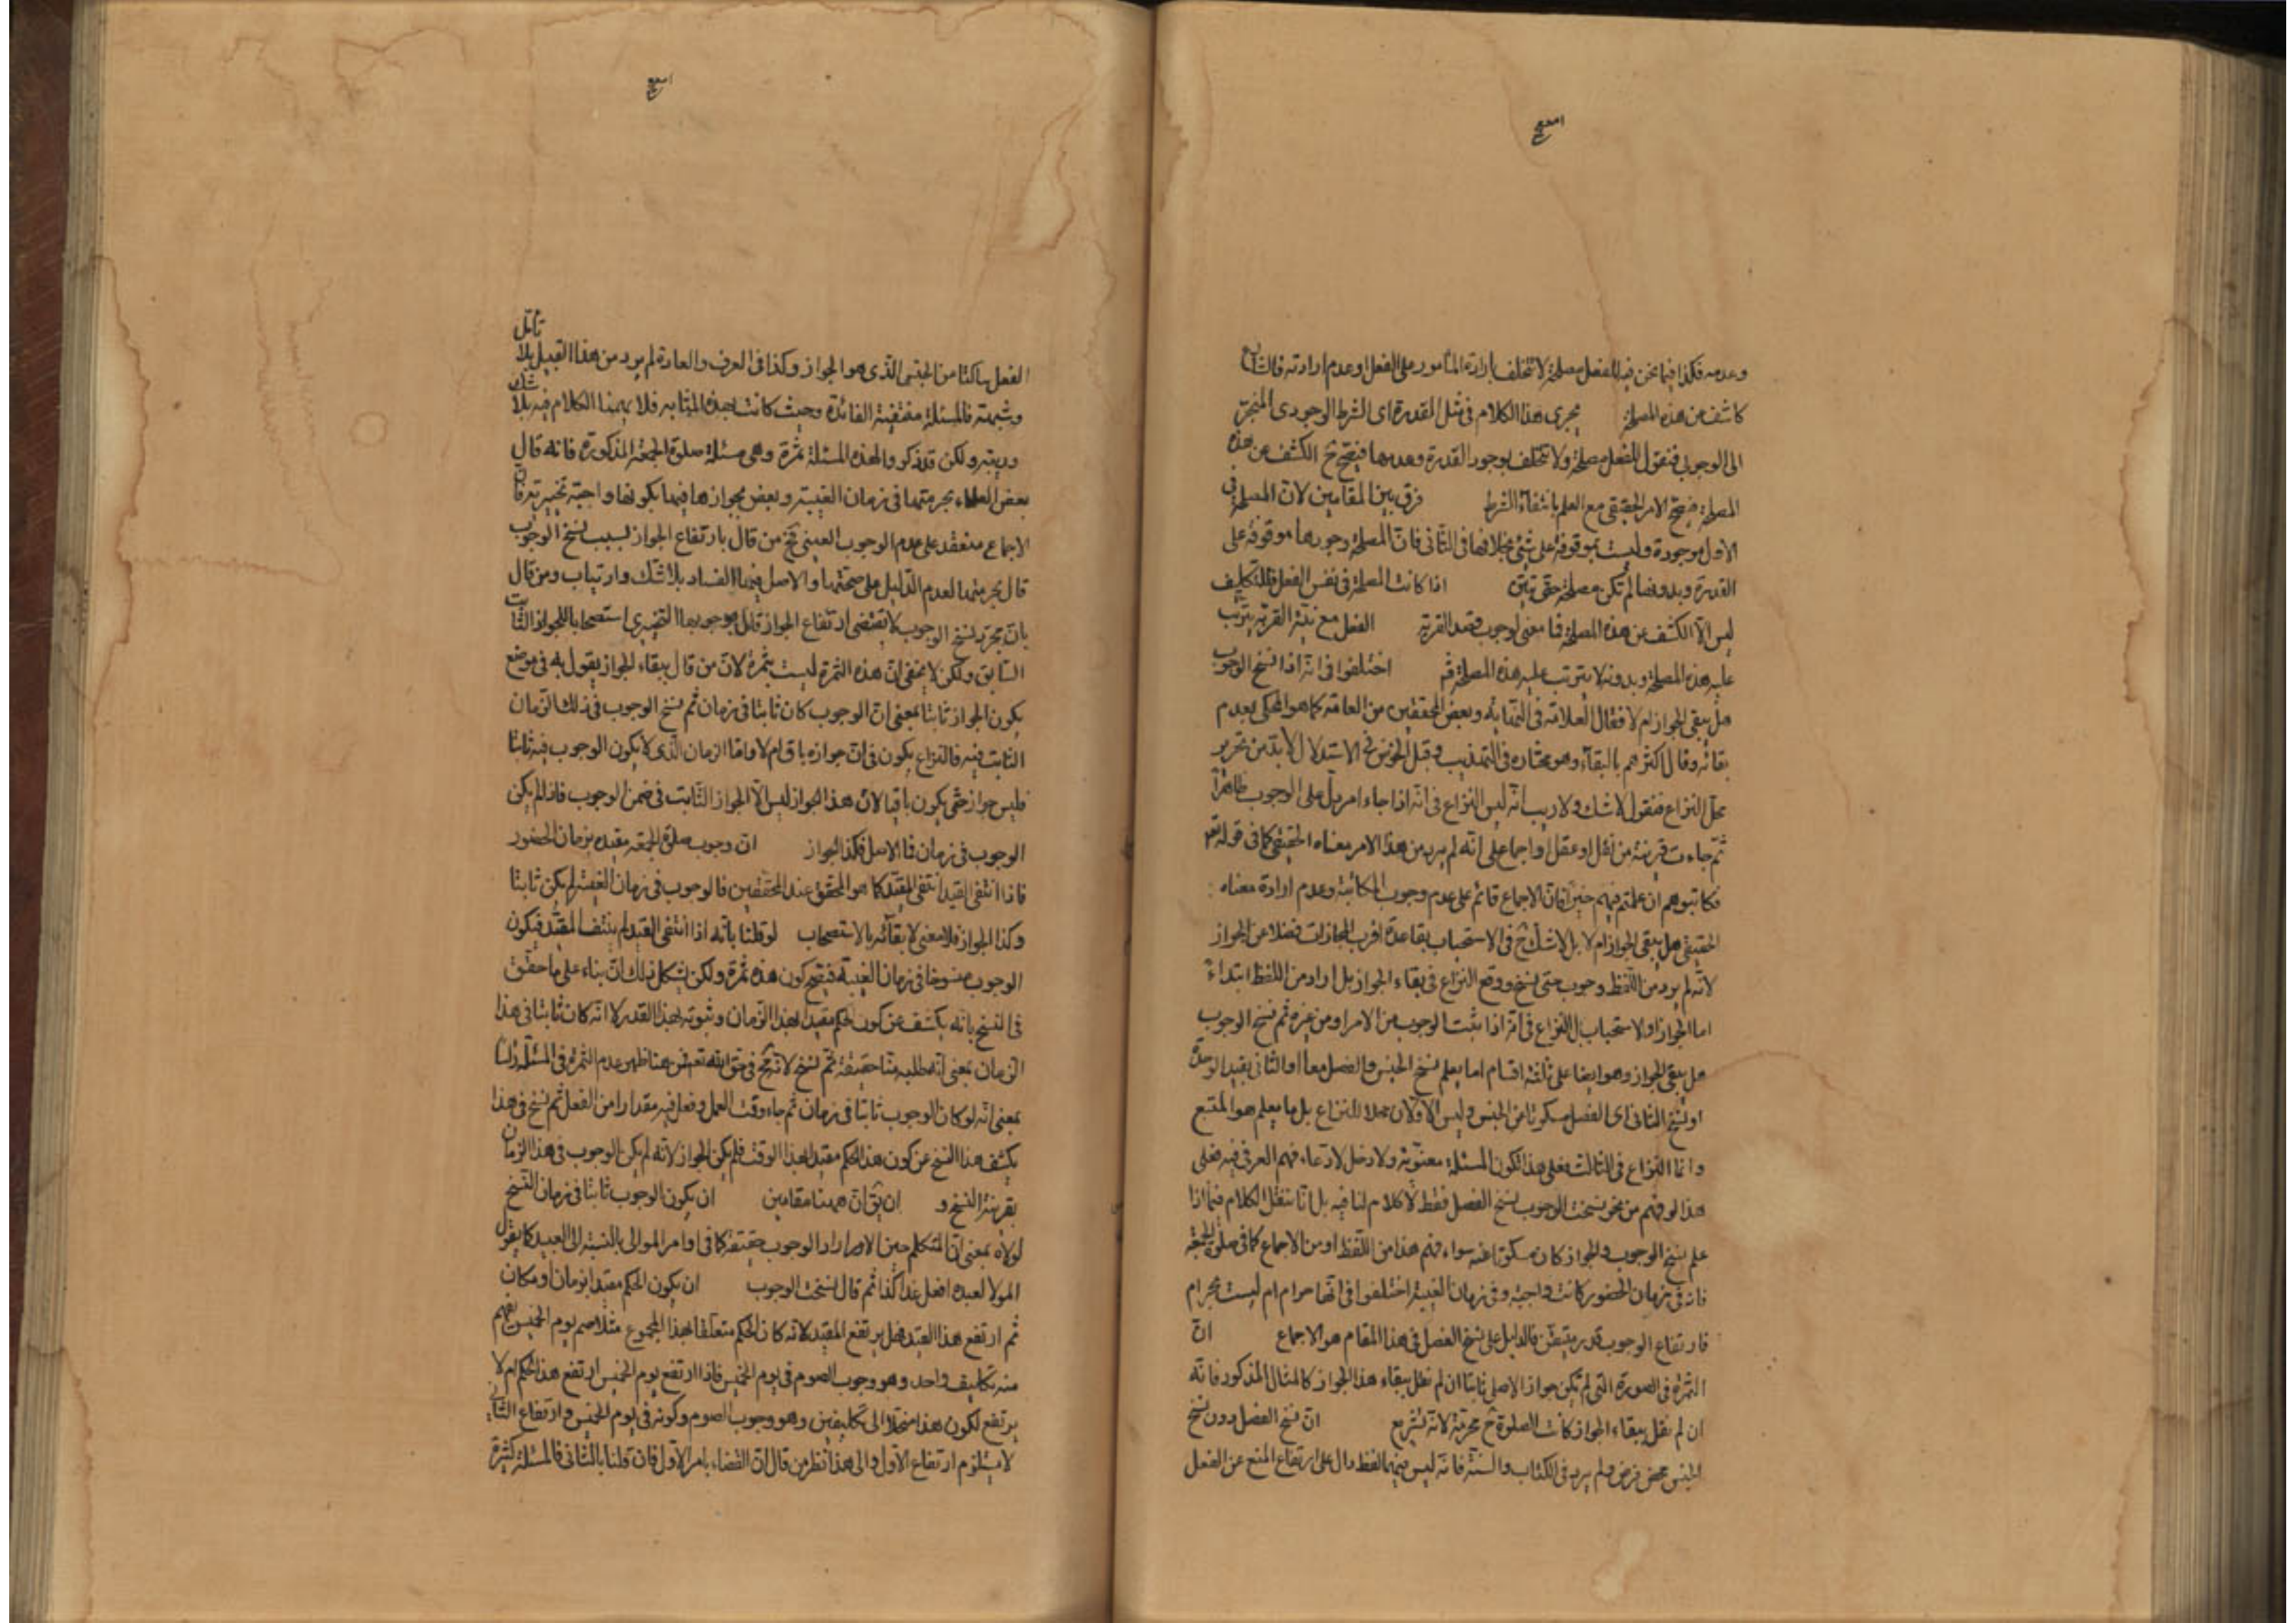 وعدمه فكذا فيما نحن فيه للفعل مصلحة لا تتخلف بارادة المأمور على الفعل وعدم ارادته فالشارع
كاشف عن هذه المصلحة يجرى هذا الكلام فى مثل القدرة اى الشرط الوجودى المنجر
الى الوجوب فنقول للفعل مصلحة ولا تتخلف بوجود القدرة وعدمها فيصح ح الكشف عن هذه
المصلحة فيصح الامر الحقيقى مع العلم بانتفاء الشرط فرق بين المقامين لان المصلحة فى
الاول موجودة وليست بموقوفة على شئ بخلافها فى الثانى فان المصلحة وجودها موقوفة على
القدرة وبدونها لم تكن مصلحة حتى اذا كانت المصلحة فى نفس الفعل فالتكليف
ليس الا الكشف عن هذه المصلحة فما معنى لوجوب قصد القربة الفعل مع نية القربة يترتب
عليه هذه المصلحة وبدونه لا يترتب عليه هذه المصلحة اختلفوا فى انه اذا نسخ الوجوب
هل يبقى الجواز ام لا فقال العلامة فى النهاية وبعض المحققين من العامة كما هو المحكى بعدم
بقائه وقال اكثرهم بالبقاء وهو مختاره فى التهذيب وقبل الخوض فى الاستدلال لابد من تحرير
محل النزاع فنقول لا شك ولا ريب انه ليس النزاع فى انه اذا جاء امر يدل على الوجوب ظاهرا
ثم جاءت قرينة من نقل او عقل او اجماع على انه لم يرد من هذا الامر معناه الحقيقى كما فى قوله تعه
فكاتبوهم ان علمتم فيهم خيرا فان الاجماع قائم على عدم وجوب المكاتبة وعدم ارادة معناه
الحقيقى هل يبقى الجواز ام لا بل لا شك ح فى الاستحباب بقاعدة اقرب المجازات فضلا عن الجواز
لانه لم يرد من اللفظ وجوب حتى ينسخ ووقع النزاع فى بقاء الجواز بل اراد من اللفظ ابتداء
اما الجواز او الاستحباب بل النزاع فى انه اذا ثبت الوجوب من الامر او من غيره ثم نسخ الوجوب
هل يبقى الجواز وهو ايضا على ثلثة اقسام اما يعلم نسخ الجنس والفصل معا او الثانى بقيد الوحدة
او نسخ الثانى اى الفصل مسكوتا عن الجنس وليس الاولان محلا للنزاع بل ما يعلم هو المتبع
وانما النزاع فى الثالث فعلى هذا تكون المسئلة معنوية ولا دخل لادعاء فهم العرف فيه فعلى
هذا لو فهم من نحو نسخت الوجوب نسخ الفصل فقط لا كلام لنا فيه بل انا ننقل الكلام فيما اذا
علم نسخ الوجوب والجواز كان مسكوتا عنه سواء فهم هذا من اللفظ او من الاجماع كما فى صلوة الجمعة
فانه فى زمان الحضور كانت واجبة وفى زمان الغيبة اختلفوا فى انها حرام ام ليست بحرام
فارتفاع الوجوب قدر متيقن فالدليل على نسخ الفصل فى هذا المقام هو الاجماع ان
الثمرة فى الصورة التى لم يكن جواز الاصل ثابتا ان لم نقل ببقاء هذا الجواز كالمثال المذكور فانه
ان لم نقل ببقاء الجواز كانت الصلوة ح محرمة لانه تشريع ان نسخ الفصل دون نسخ
الجنس محض فرض ولم يرد فى الكتاب والسنة فانه ليس فيهما لفظ دال على ارتفاع المنع عن الفعل
تأمل
الفعل ساكتا من الجنس الذى هو الجواز وكذا فى العرف والعادة لم يرد من هذا القبيل بلا
وشبهة فالمسئلة منتفية الفائدة وحيث كانت بهذه المثابه فلا يهمنا الكلام فيه بلا شك
وريبة ولكن قد ذكروا لهذه المسئلة ثمرة وهى مسئلة صلوة الجمعة المذكورة فانه قال
بعض العلماء بحرمتها فى زمان الغيبة وبعض بجوازها فيها بكونها واجبة تخيير فان
الاجماع منعقد على عدم الوجوب العينى فح من قال بارتفاع الجواز بسبب نسخ الوجوب
قال بحرمتها لعدم الدليل على صحتها والاصل فيها الفساد بلا شك وارتياب ومن قال
بان مجرد نسخ الوجوب لا يقتضى ارتفاع الجواز قال بوجوبها التخييرى استصحابا للجواز الثابت
السابق ولكن لا يخفى ان هذه الثمرة ليست بثمرة لان من قال ببقاء الجواز يقول به فى موضع
يكون الجواز ثابتا بمعنى ان الوجوب كان ثابتا فى زمان ثم نسخ الوجوب فى ذلك الزمان
الثابت فيه فالنزاع يكون فى ان جوازه باق ام لا واما الزمان الذى لا يكون الوجوب فيه ثابتا
فليس جواز حتى يكون باقيا لان هذا الجواز ليس الا الجواز الثابت فى ضمن الوجوب فاذا لم يكن
الوجوب فى زمان فالاصل فكذا الجواز ان وجوب صلوة الجمعة مقيدة بزمان الحضور
فاذا انتفى القيد انتفى المقيد كما هو المحقق عند المحققين فالوجوب فى زمان الغيبة لم يكن ثابتا
وكذا الجواز فلا معنى لابقائه بالاستصحاب لو قلنا بانه اذا انتفى القيد لم ينتف المقيد فيكون
الوجوب منسوخا فى زمان الغيبة فيصح كون هذه ثمرة ولكن يشكل ذلك ان بناء على ما حقق
فى النسخ بانه يكشف عن كون الحكم مقيدا لهذا الزمان وثبوته لهذا القدر لا انه كان ثابتا فى هذا
الزمان بمعنى انه طلبه منا حقيقة ثم نسخ لانه قبيح فى حق الله تعه فمن هنا ظهر عدم الثمرة فى المسئلة راسا
بمعنى انه لو كان الوجوب ثابتا فى زمان ثم جاء وقت العمل وفعل فيه مقدارا من الفعل ثم نسخ فى هذا
يكشف هذا النسخ عن كون هذا الحكم مقيدا لهذا الوقت فلم يكن الجواز لانه لم يكن الوجوب فى هذا الزمان
بقرينة النسخ و ان يق ان ههنا مقامين ان يكون الوجوب ثابتا فى زمان النسخ
لولاه بمعنى ان المتكلم حين الامر اراد الوجوب حقيقة كما فى اوامر الموالى بالنسبة الى العبيد كما يقول
المولا لعبده افعل غدا كذا ثم قال نسخت الوجوب ان يكون الحكم مقيدا بزمان او مكان
ثم ارتفع هذا القيد فهل يرتفع المقيد لانه كان الحكم متعلقا بهذا المجموع مثلا صم يوم الخميس يفهم
منه تكليف واحد وهو وجوب الصوم فى يوم الخميس فاذا ارتفع يوم الخميس ارتفع هذا الحكم ام لا
يرتفع لكون هذا منحلا الى تكليفين وهو وجوب الصوم وكونه فى يوم الخميس وارتفاع الثانى
لا يستلزم ارتفاع الاول والى هذا نظر من قال ان القضاء بامر الاول فان قلنا بالثانى فالمسئلة كثيرة